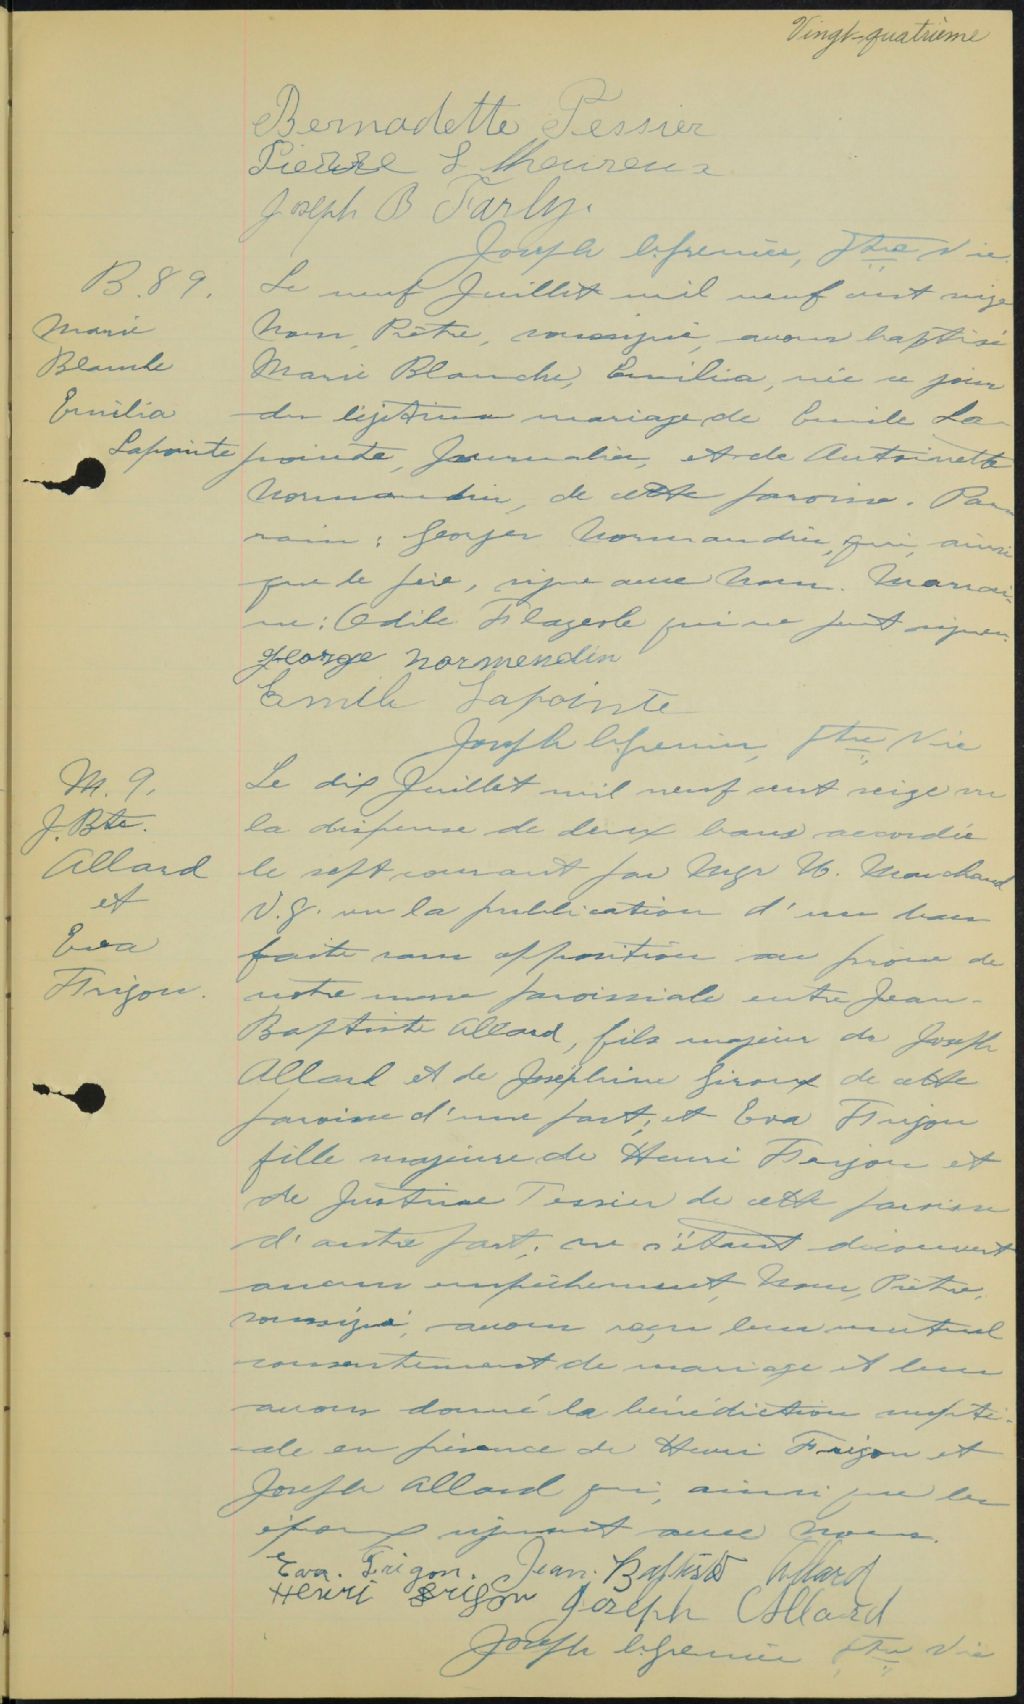 Vingt-quatrième
Bernadette Tessier
Pierre L'heureux
Joseph B Farly.
Joseph Grenier, Ptre Vic
B. 89.
Marie
Blanche
Emilia
Lapointe
Le neuf Juillet mil neuf cent seize
Nous, Prêtre, soussigné, avons baptisé
Marie Blanche, Emilia, née ce jour
du légitime mariage de Emile La-
pointe, Journalier, et de Antoinette
Normandin, de cette paroisse. Par-
rain: Georges Normandin, qui, ainsi
que le père, signe avec Nous. Marrai-
ne: Odile Flageole qui ne peut signer.
George Normendin
Emile Lapointe
Joseph Grenier, Ptre Vic
M. 9.
J. Bte.
Allard
et
Eva
Frigon.
Le dix Juillet mil neuf cent seize vu
la dispense de deux bans accordée
le sept courant par Mgr U. Marchand
V.G. vu la publication d'un ban
faite sans opposition au prône de
notre messe paroissiale entre Jean-
Baptiste Allard, fils majeur de Joseph
Allard et de Joséphine Giroux de cette
paroisse d'une part; et Eva Frigon
fille majeure de Henri Frigon et
de Justine Tessier de cette paroisse
d'autre part; ne s'étant découvert
aucun empêchement, Nous, Prêtre,
soussigné, avons reçu leur mutuel
consentement de mariage et leur
avons donné la bénédiction nupti-
ale en présence de Henri Frigon et
Joseph Allard qui, ainsi que les
époux signent avec Nous.
Eva. Frigon. Jean. Baptiste Allard
Henri Frigon Joseph Allard
Joseph Grenier Ptre Vic